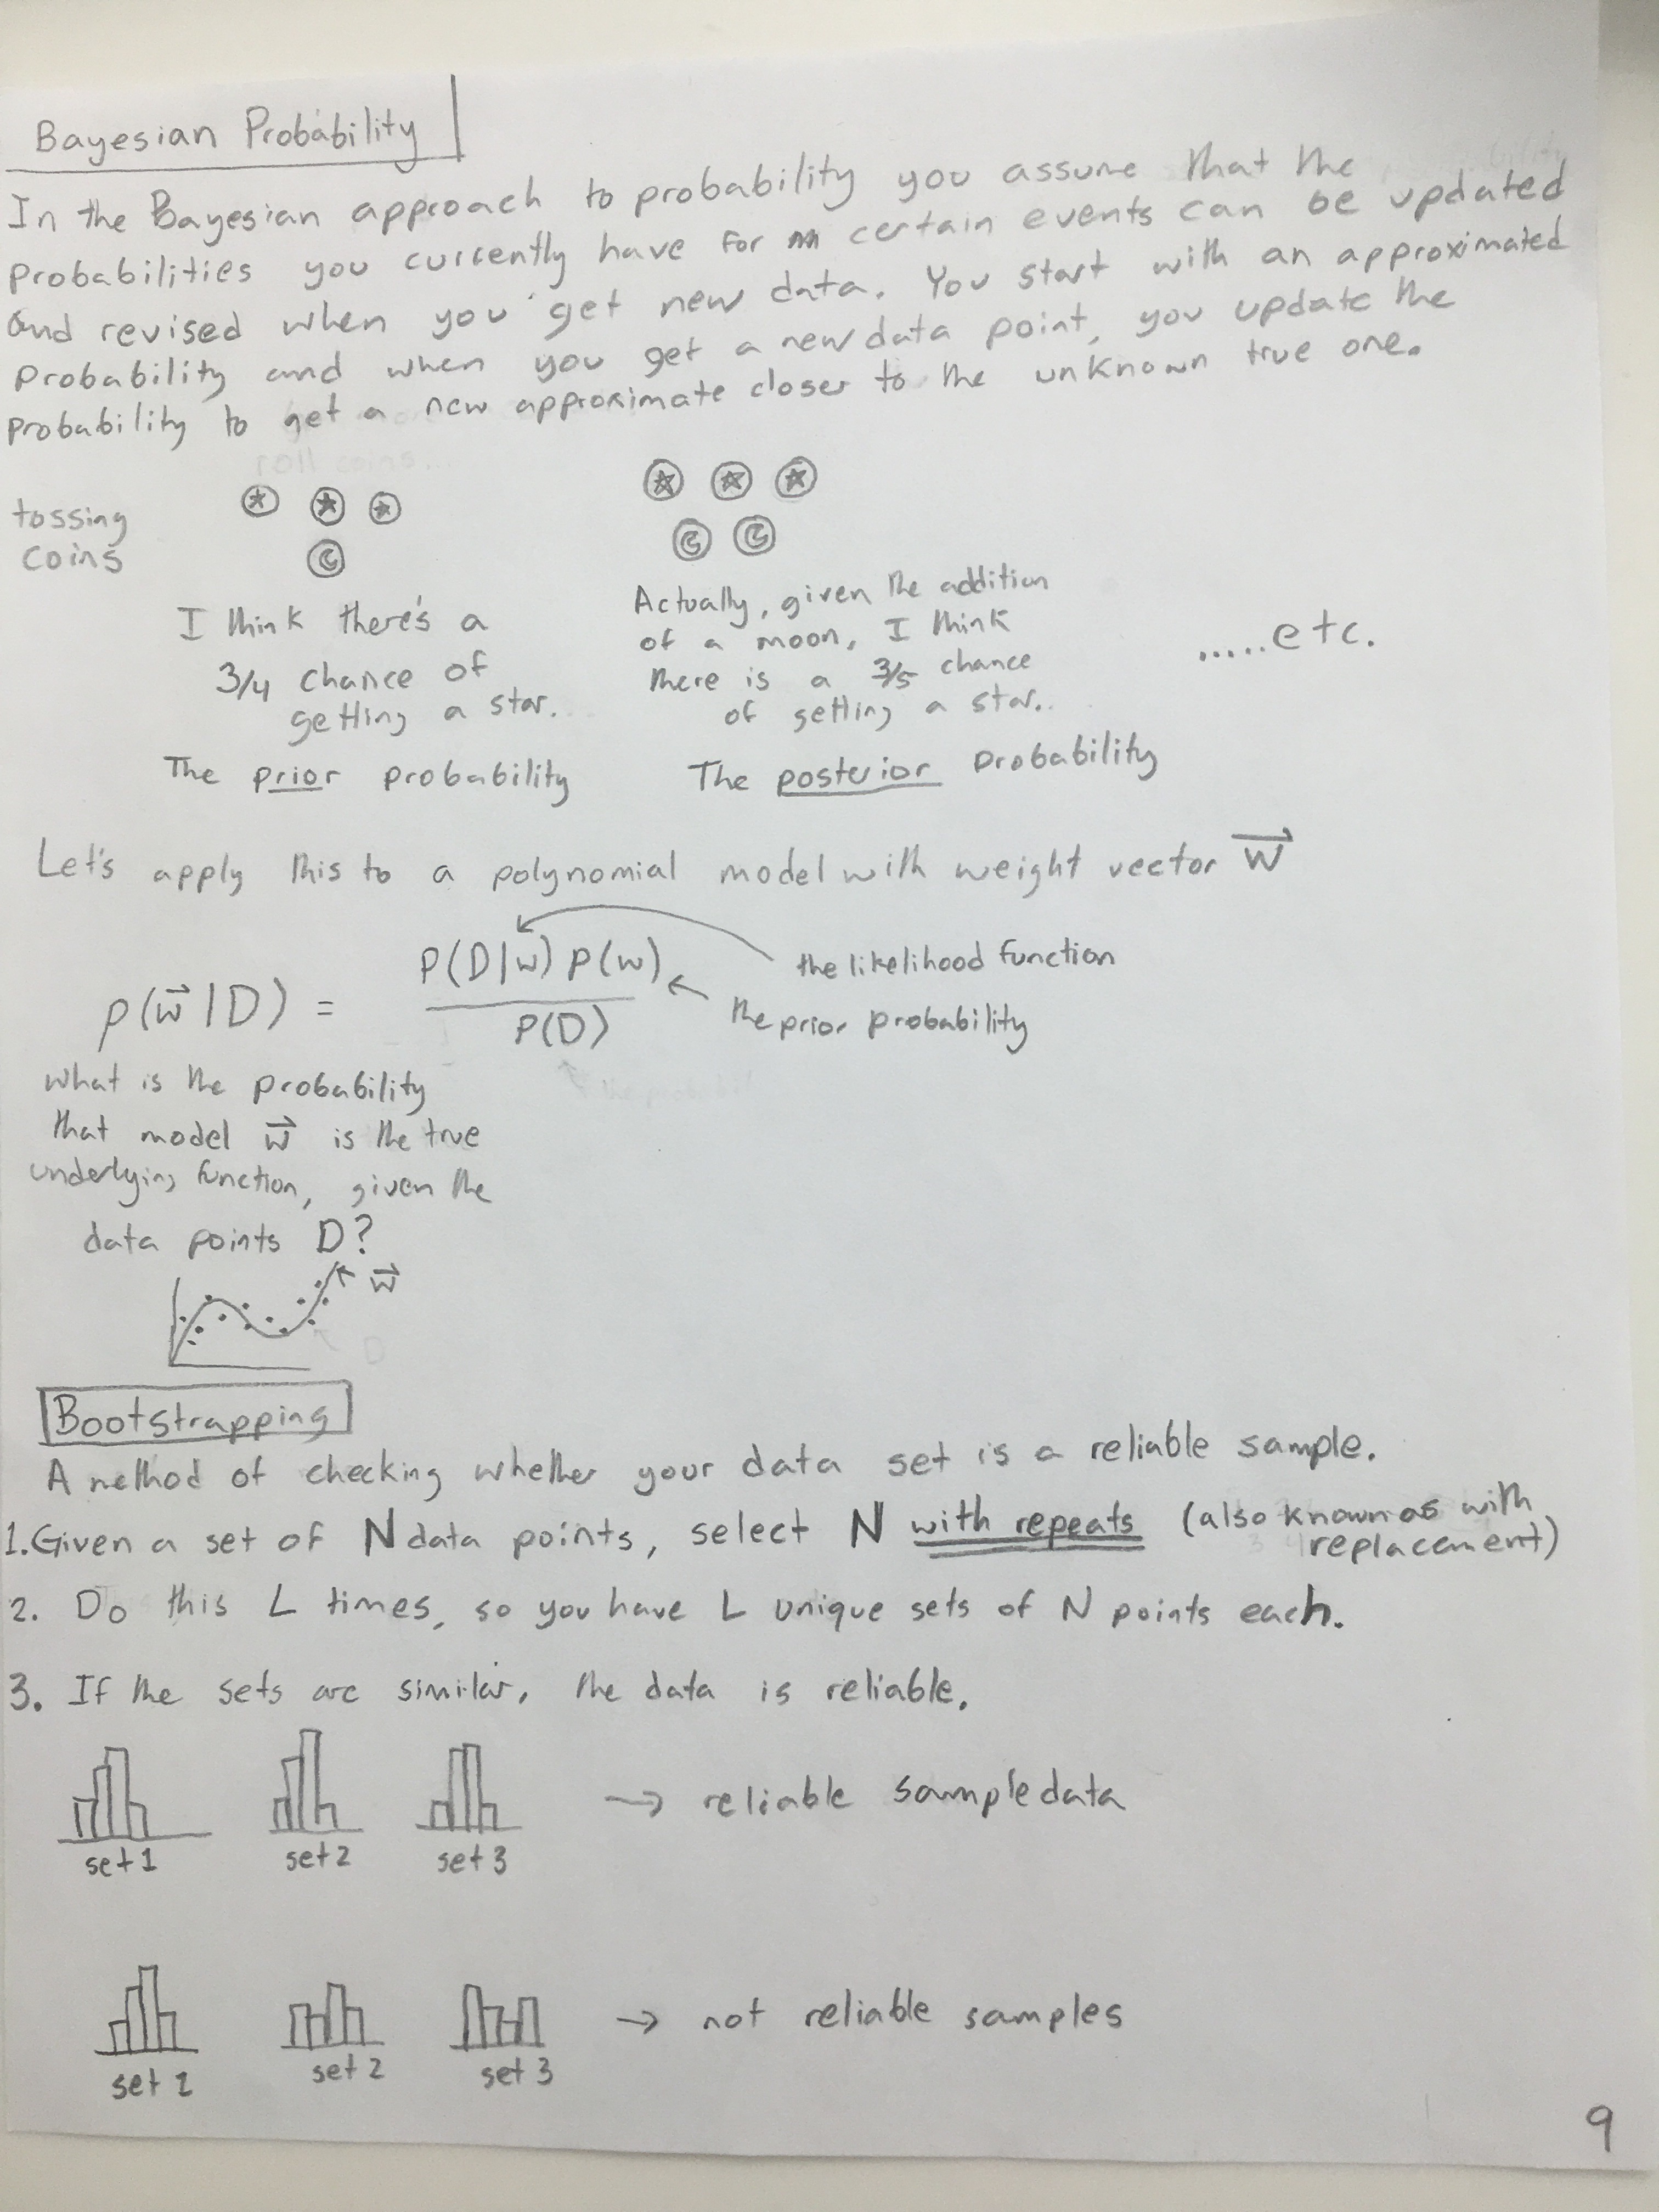 Bayesian Probability
In the Bayesian approach to probability you assume that the
probabilities you currently have for certain events can be updated
and revised when you get new data. You start with an approximated
probability and when you get a new data point, you update the
probability to get a new approximate closer to the unknown true one.
roll coins...
tossing
coins
I think there's a
3/4 chance of
getting a star.
The prior probability
Actually, given the addition
of a moon, I think
there is a 3/5 chance
of getting a star..
The posterior probability
.....etc.
Let's apply this to a polynomial model with weight vector w⃗
p(w⃗|D) = P(D|w) P(w) / P(D)
the likelihood function
the prior probability
what is the probability
that model w⃗ is the true
underlying function, given the
data points D?
w⃗
D
Bootstrapping
A method of checking whether your data set is a reliable sample.
1. Given a set of N data points, select N with repeats (also known as with
replacement)
2. Do this L times, so you have L unique sets of N points each.
3. If the sets are similar, the data is reliable.
set 1 set 2 set 3 → reliable sample data
set 1 set 2 set 3 → not reliable samples
9